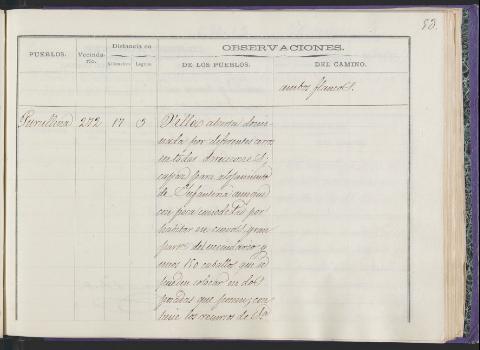 53.
PUEBLOS.
Vecinda-
rio.
Distancia en
Kilómetros
Leguas
OBSERVACIONES.
DE LOS PUEBLOS.
DEL CAMINO.
ambos flancos.
Purullena 272 17 3 Villa abierta domi-
nada por diferentes cerros
en todas direcciones;
capaz para alojamiento
de Infantería aunque
con poca comodidad por
habitar en cuevas gran
parte del vecindario y
unos 150 caballos que se
pueden colocar en dos
posadas que tiene;
los recursos de